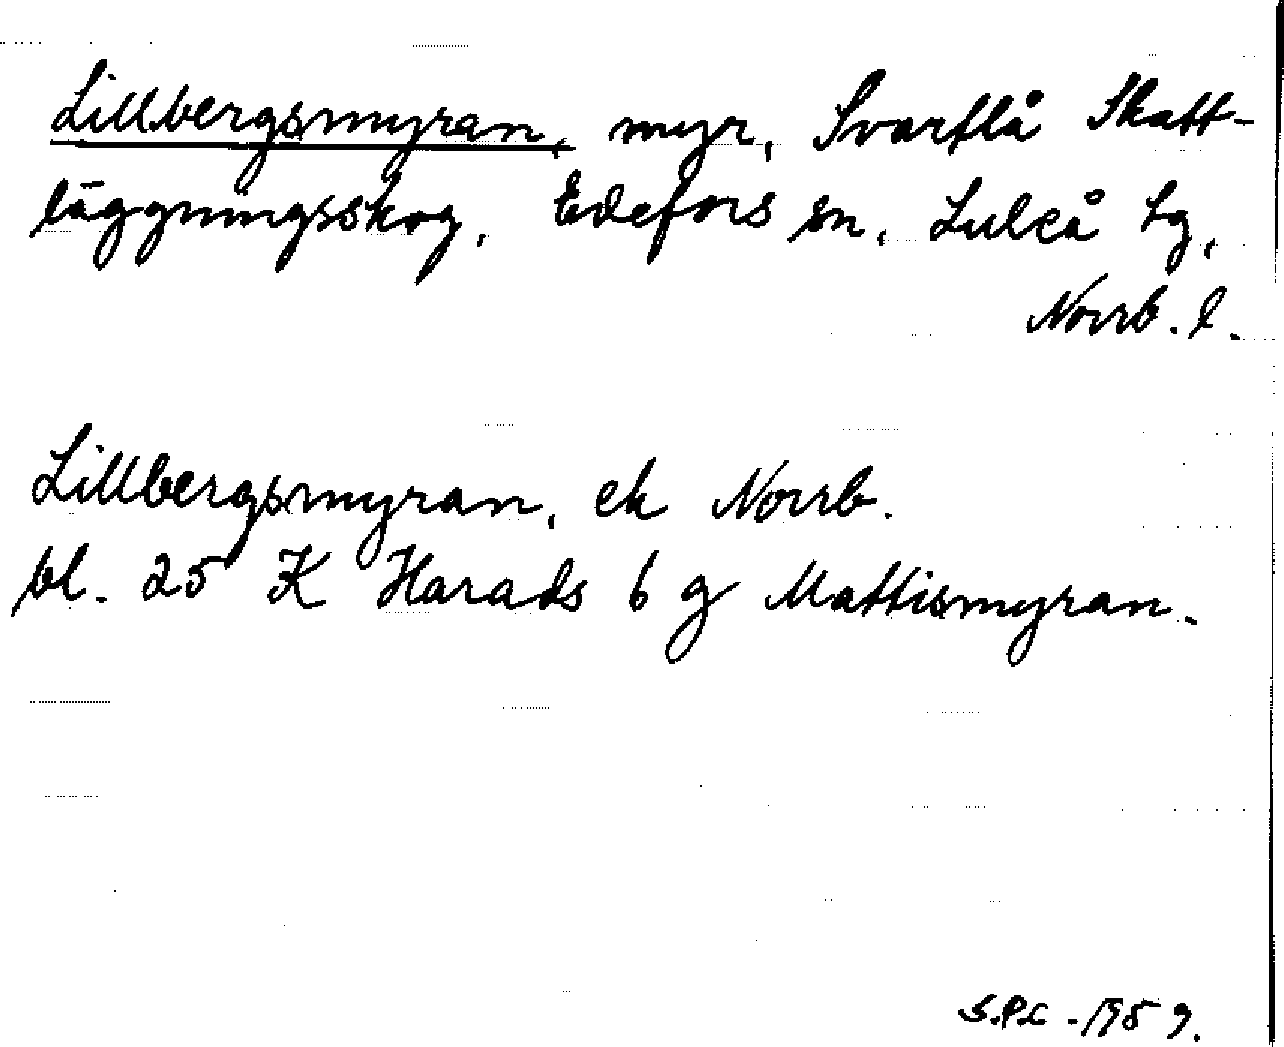 Lillbergsmyran, myr, Svartlå Skatt-
läggningsskog, Edefors sn, Luleå tg,
Norrb. l.
Lillbergsmyran, ek Norrb.
bl. 25 K Harads 6 g Mattismyran.
S.P.L -1959.